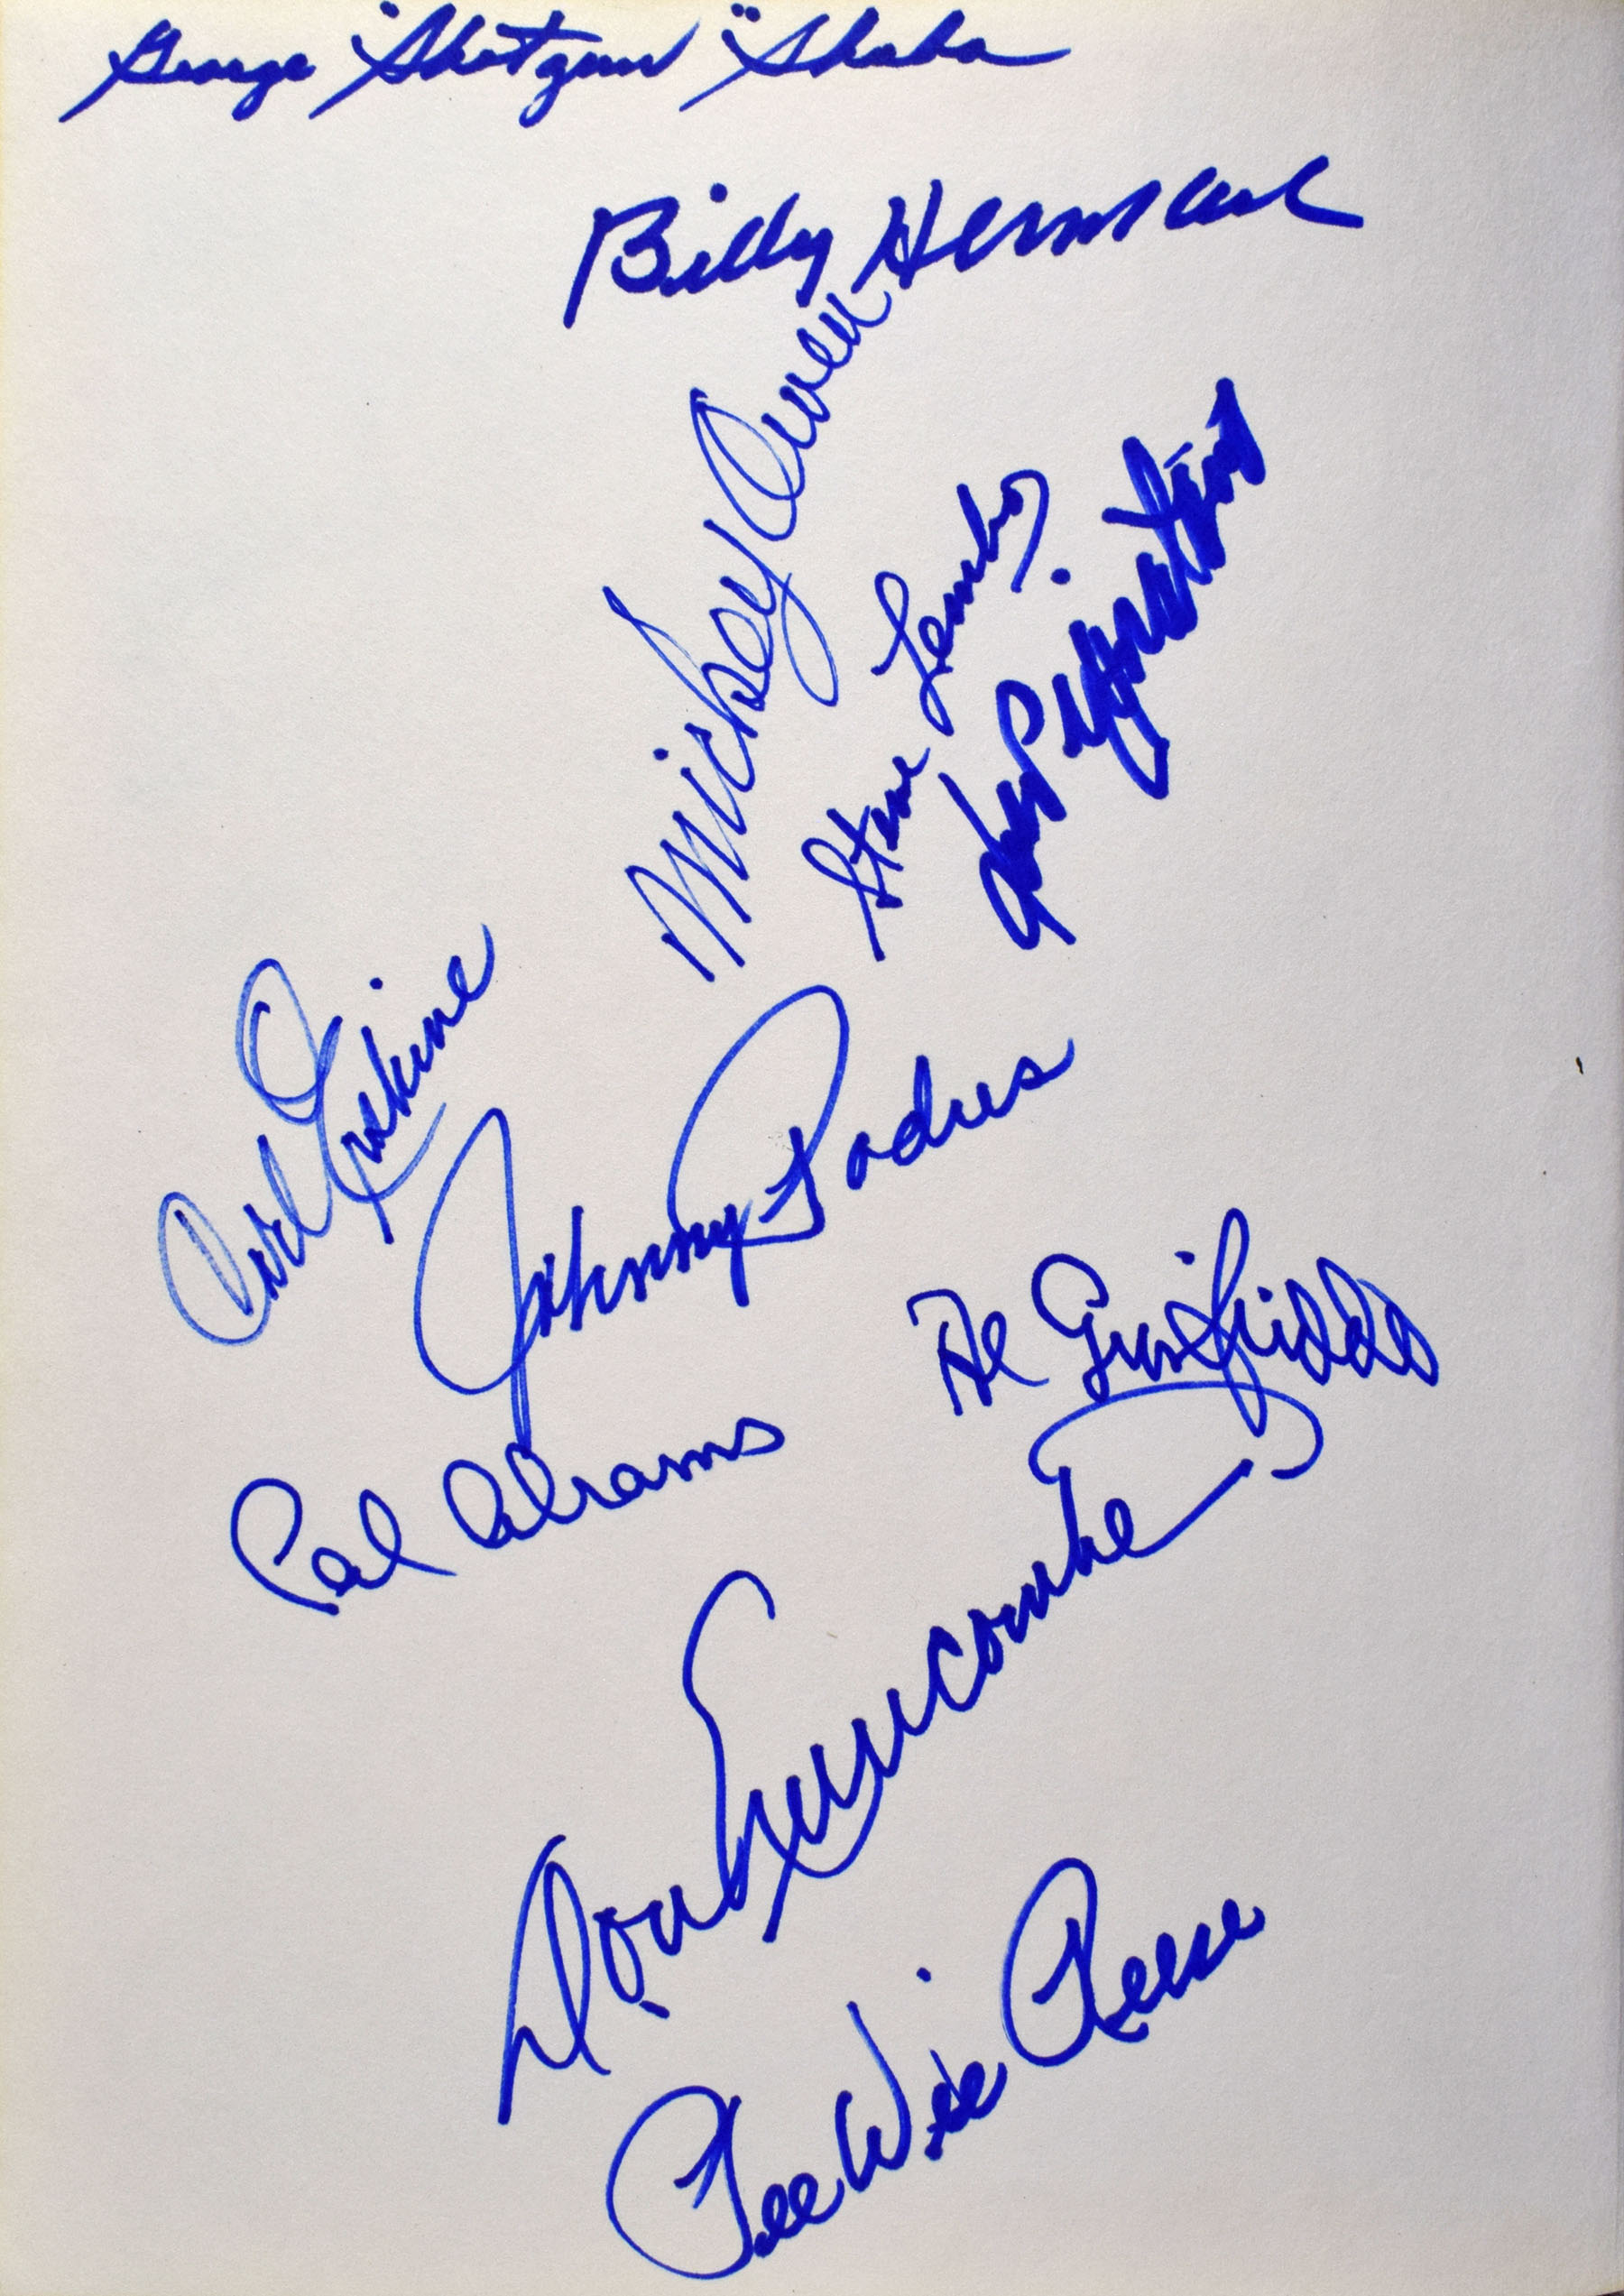 George "Shotgun" Shuba
Billy Herman
Mickey Owen
Steve Lembo
Joe Pignatano
Carl Erskine
Johnny Podres
Al Gionfriddo
Cal Abrams
Don Newcombe
Pee Wee Reese